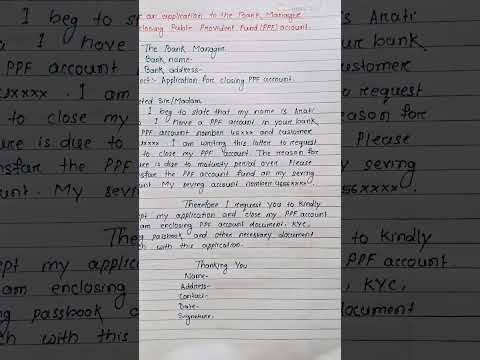 an application to the Bank Manager
closing Public Provident Fund (PPF) account.
The Bank Manager
Bank name-
Bank address-
Application for closing PPF account.
Sir/Madam
I beg to state that my name is Arati
I have a PPF account in your bank
PPF account number 45xxxx and customer
I am writing this latter to request
to close my PPF account The reason for
is due to maturity period over. Please
the PPF account fund on my seving
My seving account number 4556xxxxx.
Therefore I request you to kindly
my application and close my PPF account
am enclosing PPF account document, KYC,
passbook and other necessary document
with this application.
Thanking You
Name-
Address-
Contact-
Date-
Signature.